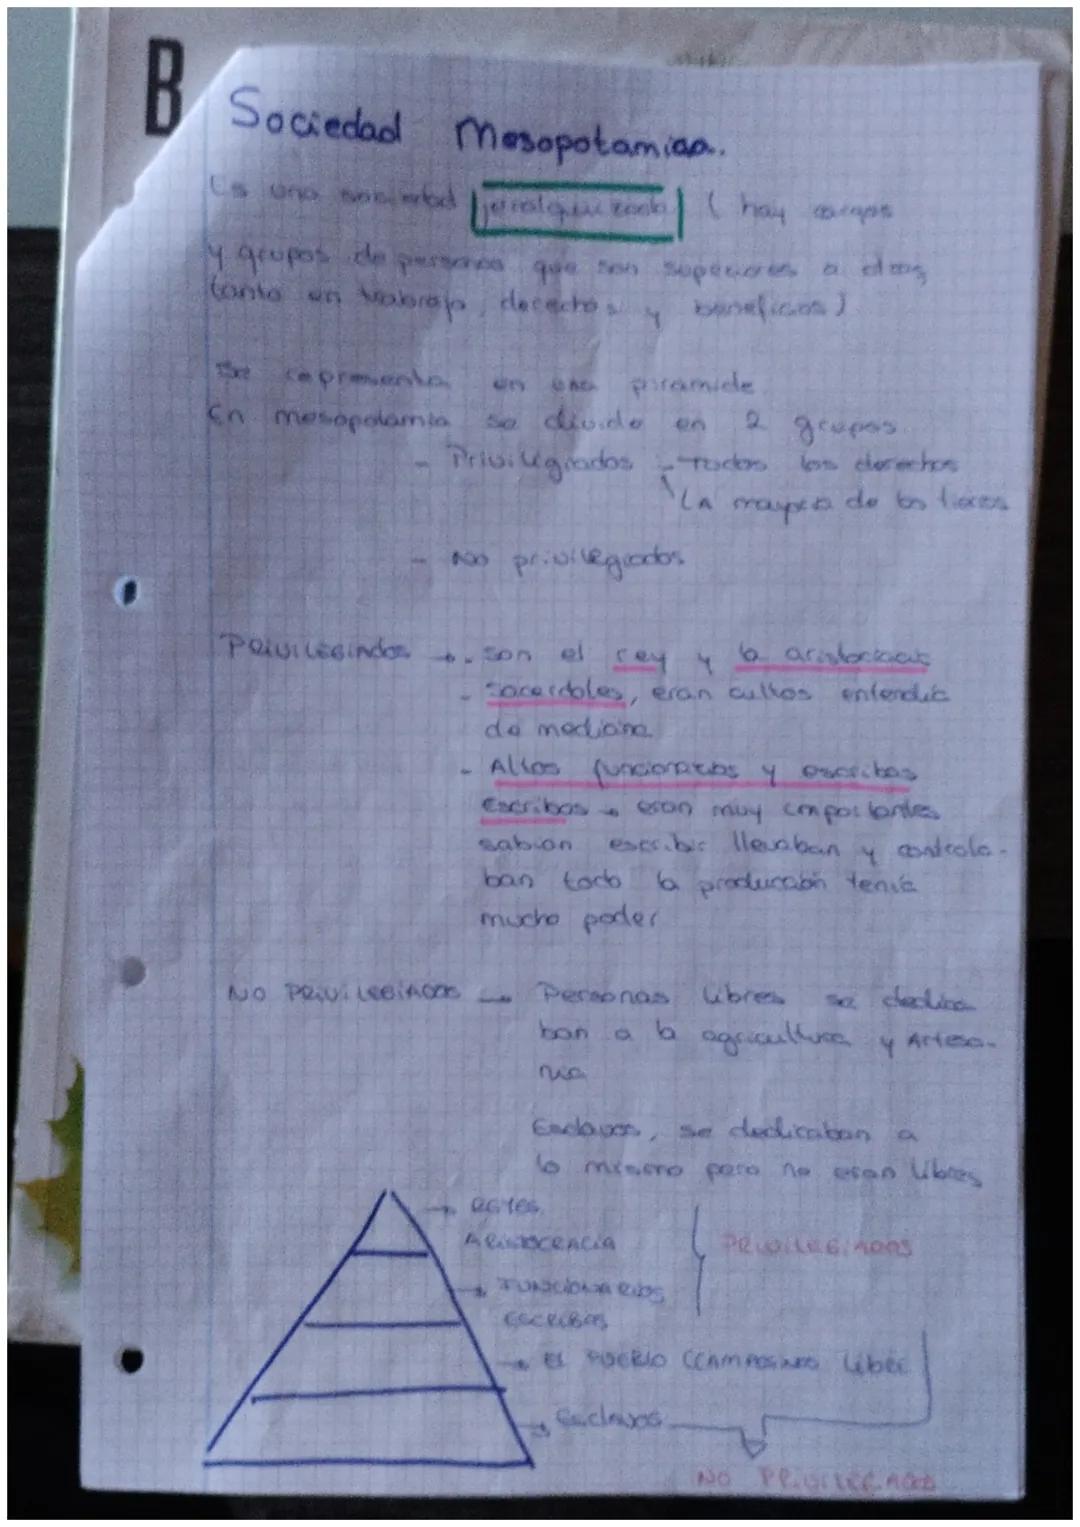 B
Sociedad Mesopotamica.
Es una sociedad jeralquizada ( hay cargos
y grupos de personas que son superiores a otros
tanto en trabajo, derechos y beneficios)
Se representa en una piramide
En mesopotamia se divide en 2 grupos.
- Privilegiados - Todos los derechos
LA mayoria de las tierras
- No privilegiados
PRIVILEGIADOS → - Son el rey y la aristocracia
- Sacerdotes, eran cultos entendia
de medicina
- Altos funcionarios y escribas
Escribas → eran muy importantes
sabian escribir llevaban y controla-
ban toda la producción tenia
mucho poder
NO PRIVILEGIADOS → Personas libres se dedica
ban a la agricultura y Artesa-
nia
Esclavos, se dedicaban a
lo mismo pero no eran libres
→ REYES.
ARISTOCRACIA
PRIVILEGIADOS
→ FUNCIONARIOS
ESCRIBAS
→ EL PUEBLO (CAMPESINO Libre
→ Esclavos
NO PRIVILEGIADOS